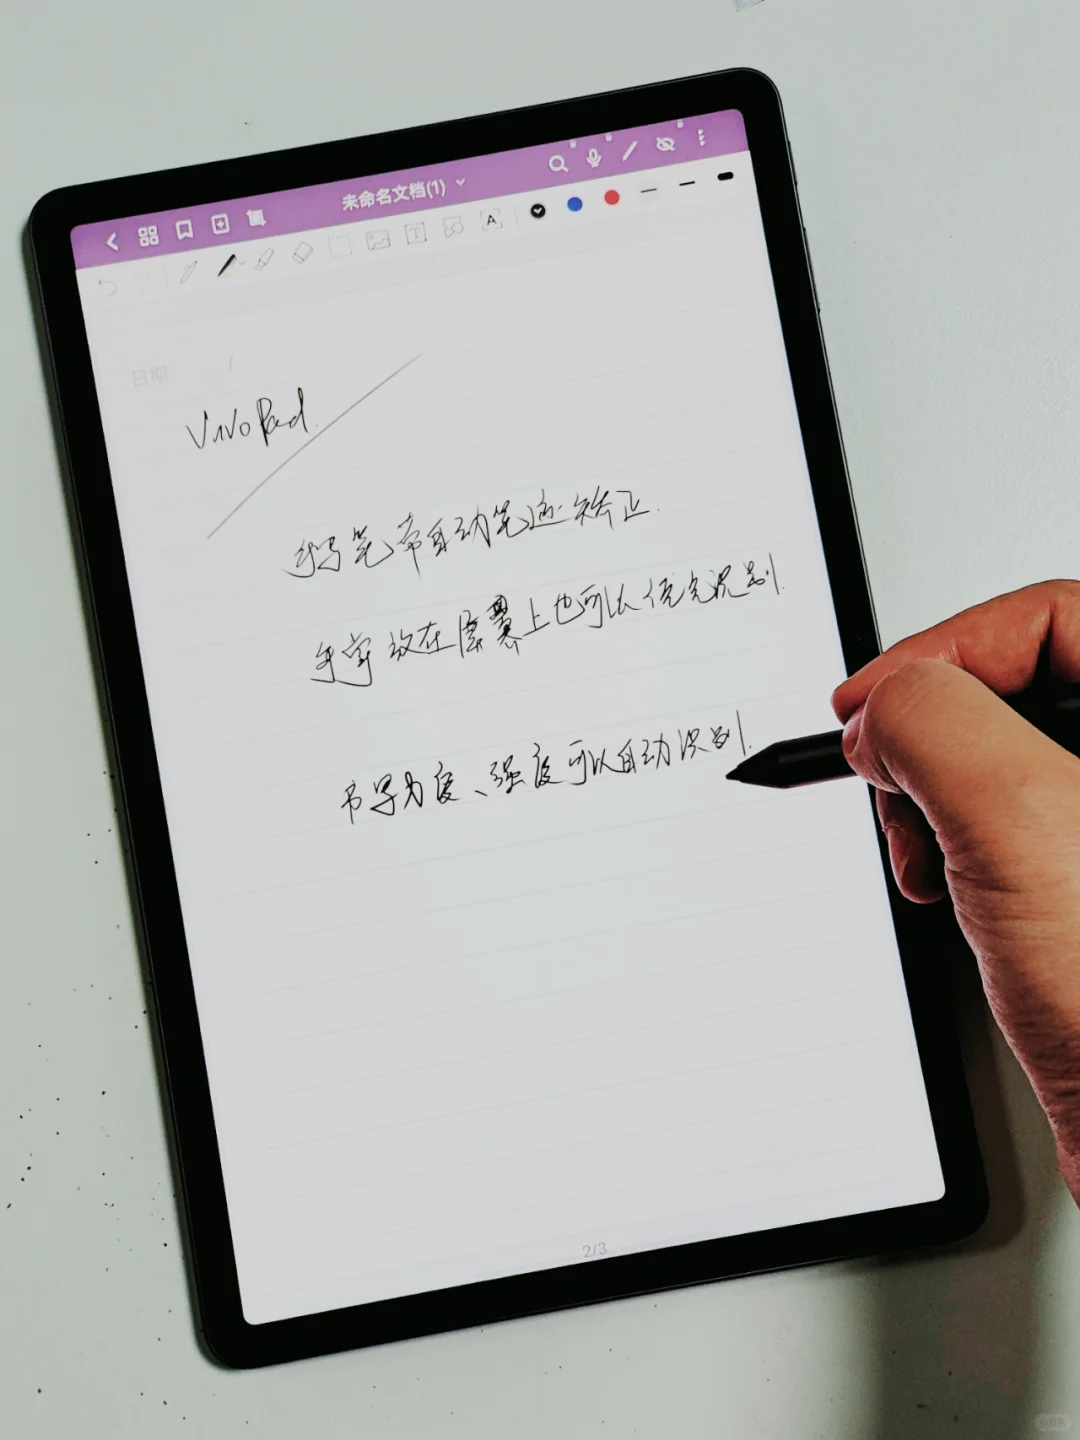 未命名文档(1)
T A
日期: /
VivoPad.
手写笔带自动笔迹矫正.
手掌放在屏幕上也可以优先识别.
书写力度、强度可以自动识别.
2/3
小红书